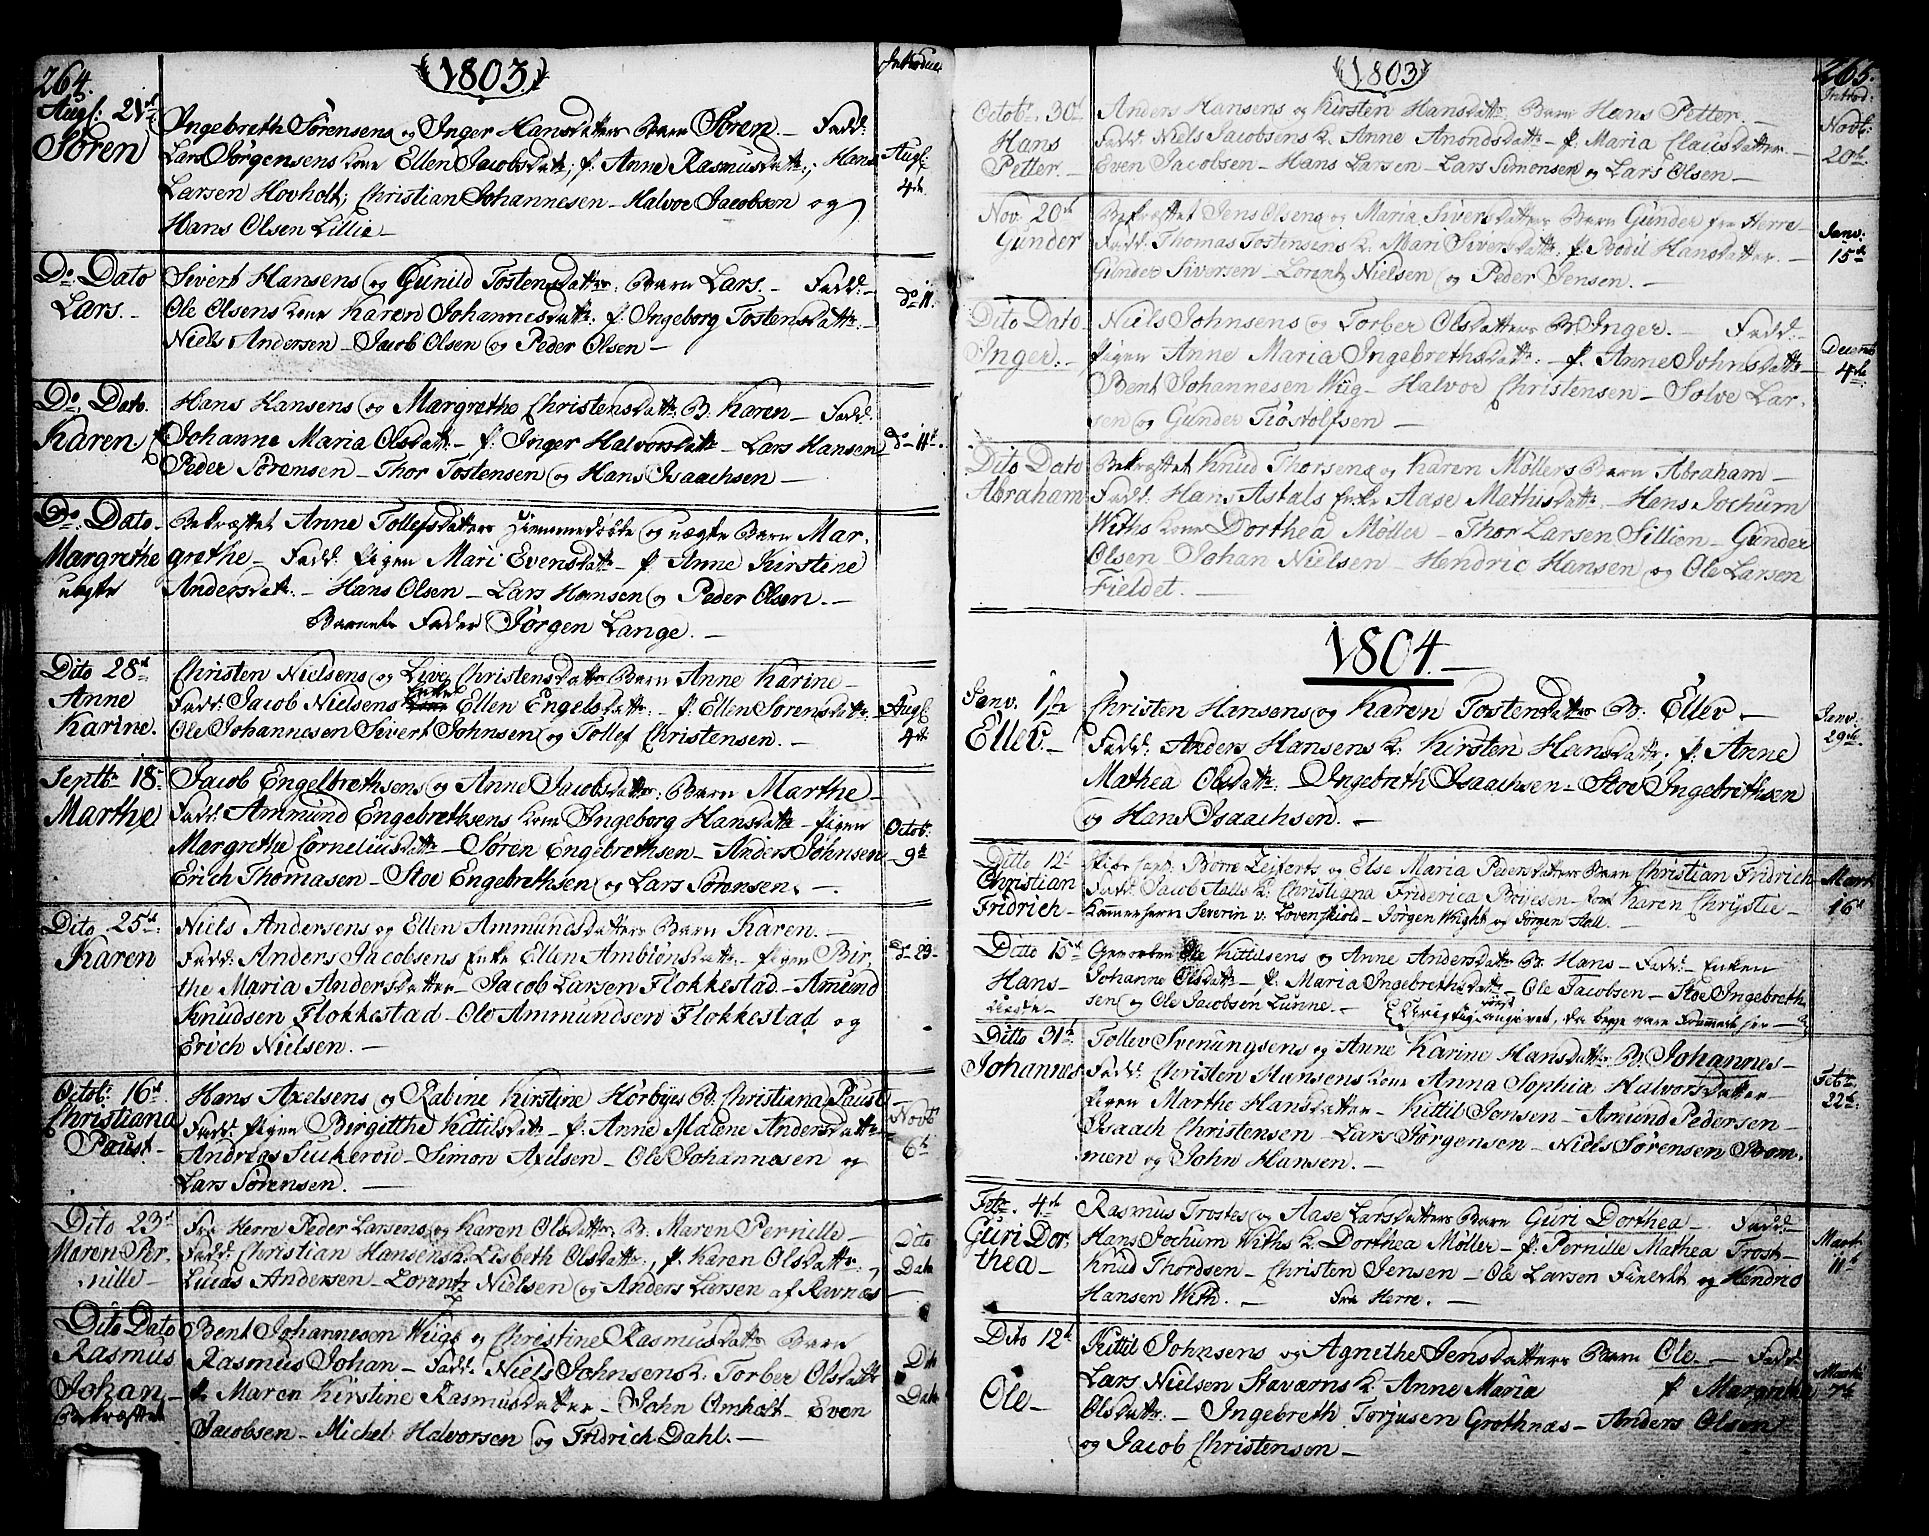 264.
1803
Introduc
Augs: 21de
Søren
Ingebreth Sørensens og Inger Hansdatters Barn Søren. – Fadd:
Lars Jørgensens kone Ellen Jacobsdatt:, p. Anne Rasmusdatt:, Hans
Larsen Hovholt; Christian Johannesen – Halvor Jacobsen og
Hans Olsen Lillie –
Augs:
4de
Do Dato
Lars. –
Sivert Hansens og Gunild Tostensdatters Barn Lars. – Fadd: –
Ole Olsens kone Karen Johannesdatt: p. Ingeborg Tostensdatt: –
Niels Andersen – Jacob Olsen og Peder Olsen –
do 11.
Do. Dato.
Karen.
Hans Hansens og Margrethe Christensdatt: B. Karen – Fadd:
Johanne Maria Olsdatt: – p. Inger Halvorsdatt – Lars Hansen
Peder Sørensen – Thor Tostensen og Hans Isaachsen –
do 11t.
Do. Dato.
Margrethe
uægte
Bekræftet Anne Tollefsdatters hjemmedøbte og uægte Barn Mar-
grethe – Fadd: Pigen Mari Evensdatt – p. Anne Kirstine
Andersdat. – Hans Olsen – Lars Hansen og Peder Olsen. –
Barnets Fader Jørgen Lange. –
Dito 28de
Anne
Karine.
Christen Nielsens og Live Christensdatt: Barn Anne Karine –
Enke
Fadd: Jacob Nielsens Ellen Engelsdatt: – p. Ellen Sørensdatt:
Ole Johannesen Sivert Johnsen og Tollef Christensen. –
Augs:
4de
Septbr 18.
Marthe
Jacob Engelbrethsens og Anne Jacobsdatters Barn Marthe –
Fadd: Ammund Engebrethsens kone Ingeborg Hansdatt – Pigen
Margrethe Corneliusdatt – Søren Engebrethsen – Anders Johnsen
Erich Thomasen – Stoe Engebrethsen og Lars Sørensen. –
Octob:
9de
Dito 25de
Karen
Niels Andersens og Ellen Ammundsdatters Barn Karen. –
Fadd: Anders Jacobsens Enke Ellen Ambiønsdatt – Pigen Bir-
the Maria Andersdatter – Jacob Larsen Flokkestad – Amund
Knudsen Flokkestad – Ole Ammundsen Flokkestad og
Erich Nielsen. –
do 23
Octob: 16de
Christiana
Paust –
Hans Axelsens og Rabine Kirstine Hørbyes B. Christiana Paust –
Fadd: Pigen Birgitthe Kittilsdatt – p. Anne Malene Andersdatt
Andreas Suckerow – Simon Axelsen – Ole Johannesen og
Lars Sørensen. –
Novb:
6te
Dito 23de
Maren Per-
nille –
Fra Herre Peder Larsens og Karen Olsdatters B. Maren Pernille –
Fadd: Christian Hansens k. Lisbeth Olsdatt., p. Karen Olsdatt.
Lucas Andersen – Lorentz Nielsen og Anders Larsen af Ravnæs –
Dito
Dato
Dito Dato
Rasmus
Johan –
Bekræftet
Bent Johannesen Wiigs og Christine Rasmusdatt Barn
Rasmus Johan – Fadd: Niels Johnsens k. Torber Olsdatt
p. Maren Kirstine Rasmusdatter – John Omholt – Even
Jacobsen – Michel Halvorsen og Fridrich Dahl. –
Dito
Dato
265.
1803
Introd:
Octob: 30de
Hans
Petter. –
Anders Hansens og Kirsten Hansdatt Barn Hans Petter. –
Fadd: Niels Jacobsens k. Anne Amondsdatt – p. Maria Clausdatter. –
Even Jacobsen – Hans Larsen – Lars Simonsen og Lars Olsen –
Novb:
20de
Nov. 20de
Gunder
Bekræftet Jens Olsens og Maria Siversdatters Barn Gunder fra Herre –
Fadd: Thomas Tostensens k. Mari Siversdatt: p. Bodil Hansdatter. –
Gunder Siversen – Lorentz Nielsen og Peder Jensen. –
Janv:
15de
Dito Dato
Inger. –
Niels Johnsens og Torber Olsdatters B. Inger. – Fadd: –
Pigen Anne Maria Ingebrethsdatt: – p. Anne Johnsdatt –
Bent Johannesen Wiig – Halvor Christensen – Solve Lar-
sen og Gunder Tiøstolfsen –
Decemb
4de
Dito Dato
Abraham
Bekræftet Knud Thorsens og Karen Møllers Barn Abraham –
Fadd: Hans Astals Enke Aase Mathisdatt – Hans Jochum
Withs kone Dorthea Møller – Thor Larsen Sillien – Gunder
Olsen – Johan Nielsen – Hendric Hansen og Ole Larsen
Fieldet. –
1804. –
Janv. 1ste
Ellev. –
Christen Hansens og Karen Tostensdatters B: Ellev. –
Fadd: Anders Hansens k. Kirsten Hansdatt; p. Anne
Mathea Olsdatt: – Ingebreth Isaachsen – Stoe Ingebrethsen
og Hans Isaachsen. –
Janv:
29de
Ditto 12t
Christian
Fridrich –
Børre Zeiferts og Else Maria Pedersdatters Barn Christian Fridrich
Fadd: Jacob Aalls k. Christiana Friderica Boyesen – Karen Chrystie –
Kammerherre Severin v. Løvenskiold – Jørgen Wright og Jørgen Aall. –
Mart
16de
Ditto 15de
Hans –
Uægte –
Ole Kittilsens og Anne Andersdatt B. Hans – Fadd: – Enken
Johanne Olsdatt – p. Maria Ingebrethsdatt – Ole Jacobsen – Stoe Ingebreth-
sen og Ole Jacobsen Lunne. – angivet, da begge vare
Ditto 31te
Johannes
Tollev Svenungsens og Anne Karine Hansdatters B. Johannes –
Fadd: Christen Hansens kone Anna Sophia Halvorsdatter –
Pigen Marthe Hansdatter – Kittil Jensen – Amund Pedersen –
Isaach Christensen – Lars Jørgensen – Niels Sørensen Bom-
men og John Hansen. –
Febr.
22de
Febr. 4de
Guri Dor-
thea –
Rasmus Trostes og Aase Larsdatters Barn Guri Dorthea – Fadd:
Hans Jochum Withs k. Dorthea Møller – p. Pernille Mathea Trost –
Knud Thordsen – Christen Jensen – Ole Larsen Fieldet og Hendric
Hansen With. – Fra Herre. –
Mart
11de
Dito 12t
Ole –
Kittil Johnsens og Agnithe Jensdatters Barn Ole. – Fadd:
Lars Nielsen Stavarns k. Anne Maria p. Margrethe
Olsdatt. – Ingebreth Torjusen Grothnæs – Anders Olsen
og Jacob Christensen –
Marti
7de